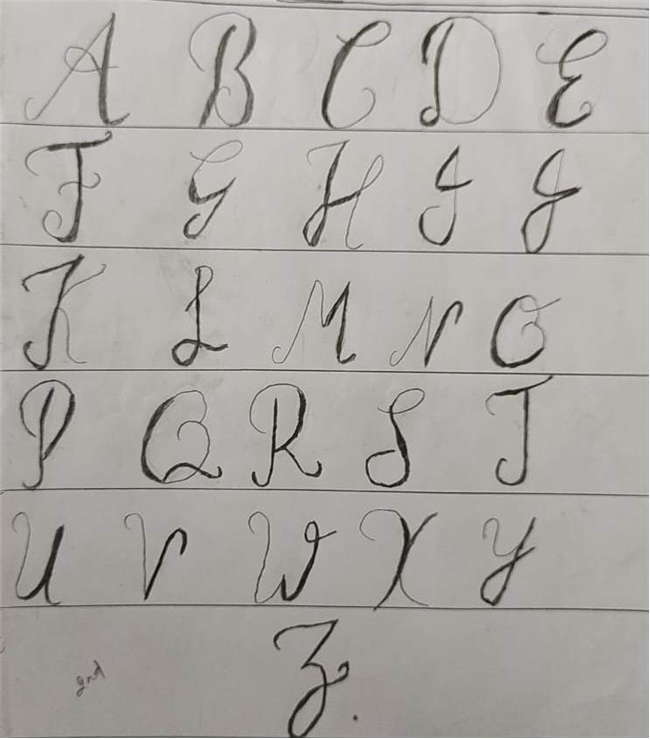 A B C D E
F G H I J
K L M N O
P Q R S T
U V W X Y
Z.